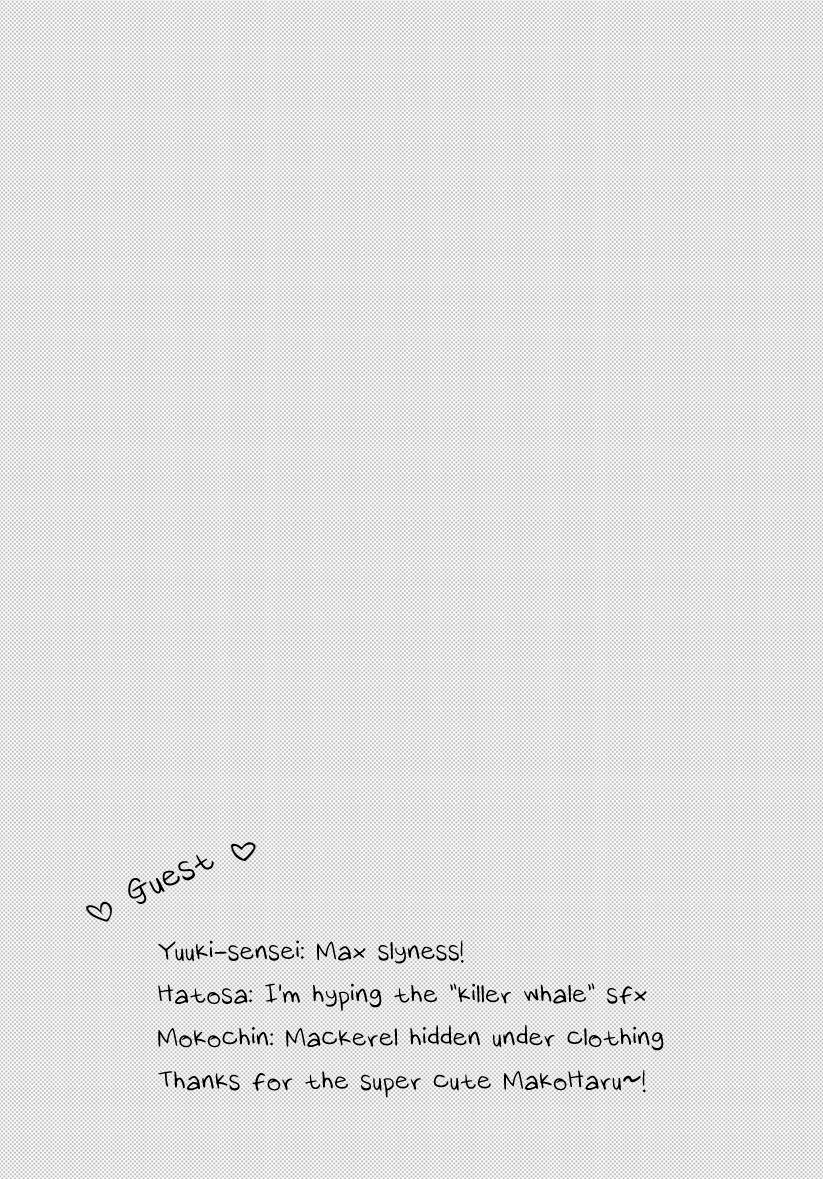 ♡ Guest ♡
Yuuki-sensei: Max slyness!
Hatosa: I'm hyping the "killer whale" sfx
Mokochin: Mackerel hidden under clothing
Thanks for the super cute MakoHaru~!